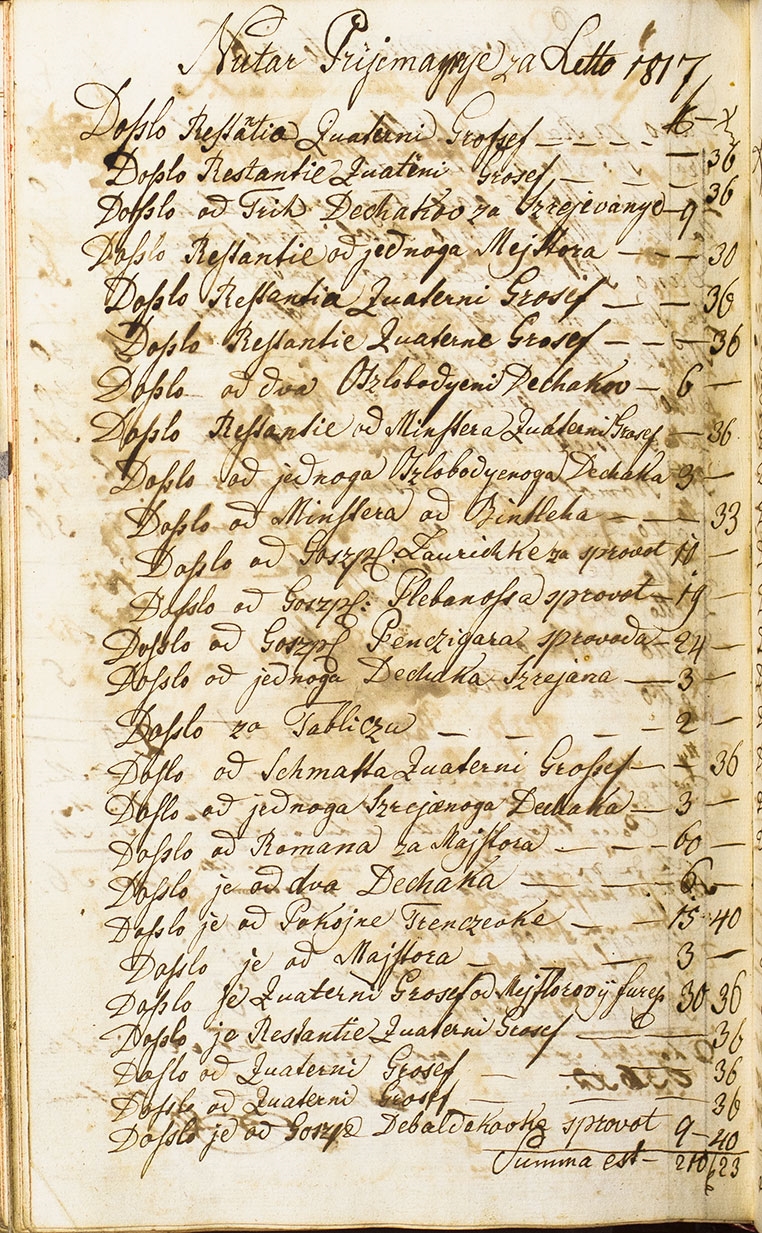 Nutar Prijemagnje za Letto 1817
f — x
Doſslo Reſſãtia Quaterni Groſsef — — — — — 36
Doſslo Restantie Quateni Grosef — — — 36
Doſslo od Trih Dechakov za Szrejevanye — 9 —
Doſslo Reſſantie od jednoga Mejſtora — — — 30
Doſslo Reſſantia Quaterni Grosef — — 36
Doſslo Reſſantie Quaterne Grosef — — — 36
Doſslo od dva Oszlobodyeni Dechakov — 6 —
Doſslo Reſſantie od Minſtera Quaterni Grosef — 36
Doſslo od jednoga Oszlobodyenoga Dechaka 3 —
Doſslo od Minſtera od Bintleha — — — 33
Doſslo od Goszpſ. Laurichke za sprovot 11 —
Doſslo od Goszpſ: Plebanoſsa sprovot — 19 —
Doſslo od Goszpſ Penczigara sprovoda — 24 —
Doſslo od jednoga Dechaka Szrejana — 3 —
Doſslo za Tabliczu — — — — 2 —
Doſslo od Schmatta Quaterni Groſsef — — 36
Doſslo od jednoga Szrejænoga Dechaka — 3 —
Doſslo od Romana za Majſtora — — — 60 —
Doſslo je od dva Dechaka — — — 6 —
Doſslo je od Pokojne Trenczevke — — 15 — 40
Doſslo je od Majſtora — — — 3 —
Doſslo je Quaterni Grosef od Mejſtorovij 30 36
Doſslo je Restantie Quaterni Grosef — — 36
Doſslo od Quaterni Grosef — — — 36
Doſslo od Quaterni Grosef — — — 36
Doſslo je od Goszp Debaldekovke sprovot 9 — 40
Summa est — 210 23